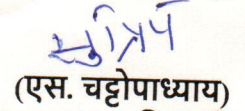 (एस. चट्टोपाध्याय)